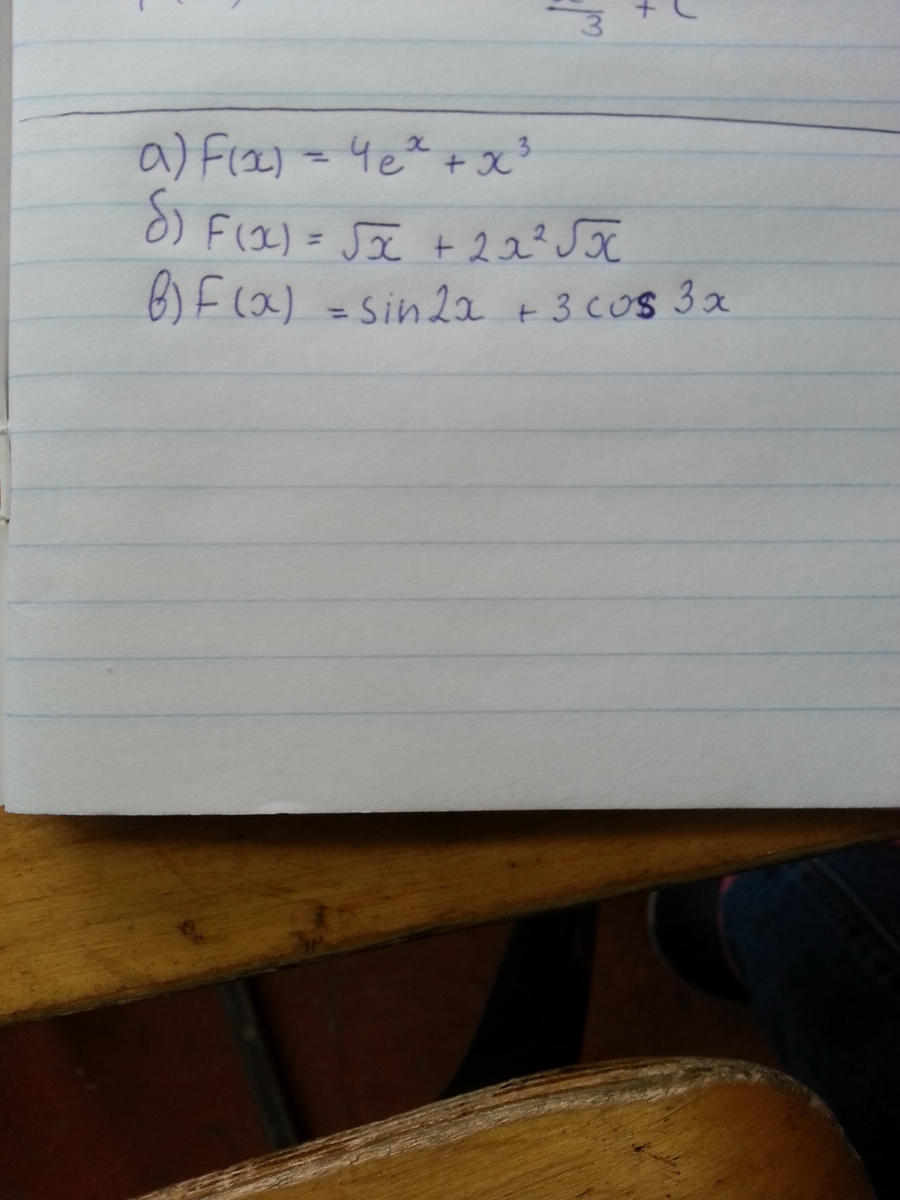 3 + C
а) F(x) = 4eˣ + x³
б) F(x) = √x + 2x²√x
в) F(x) = sin2x + 3 cos 3x